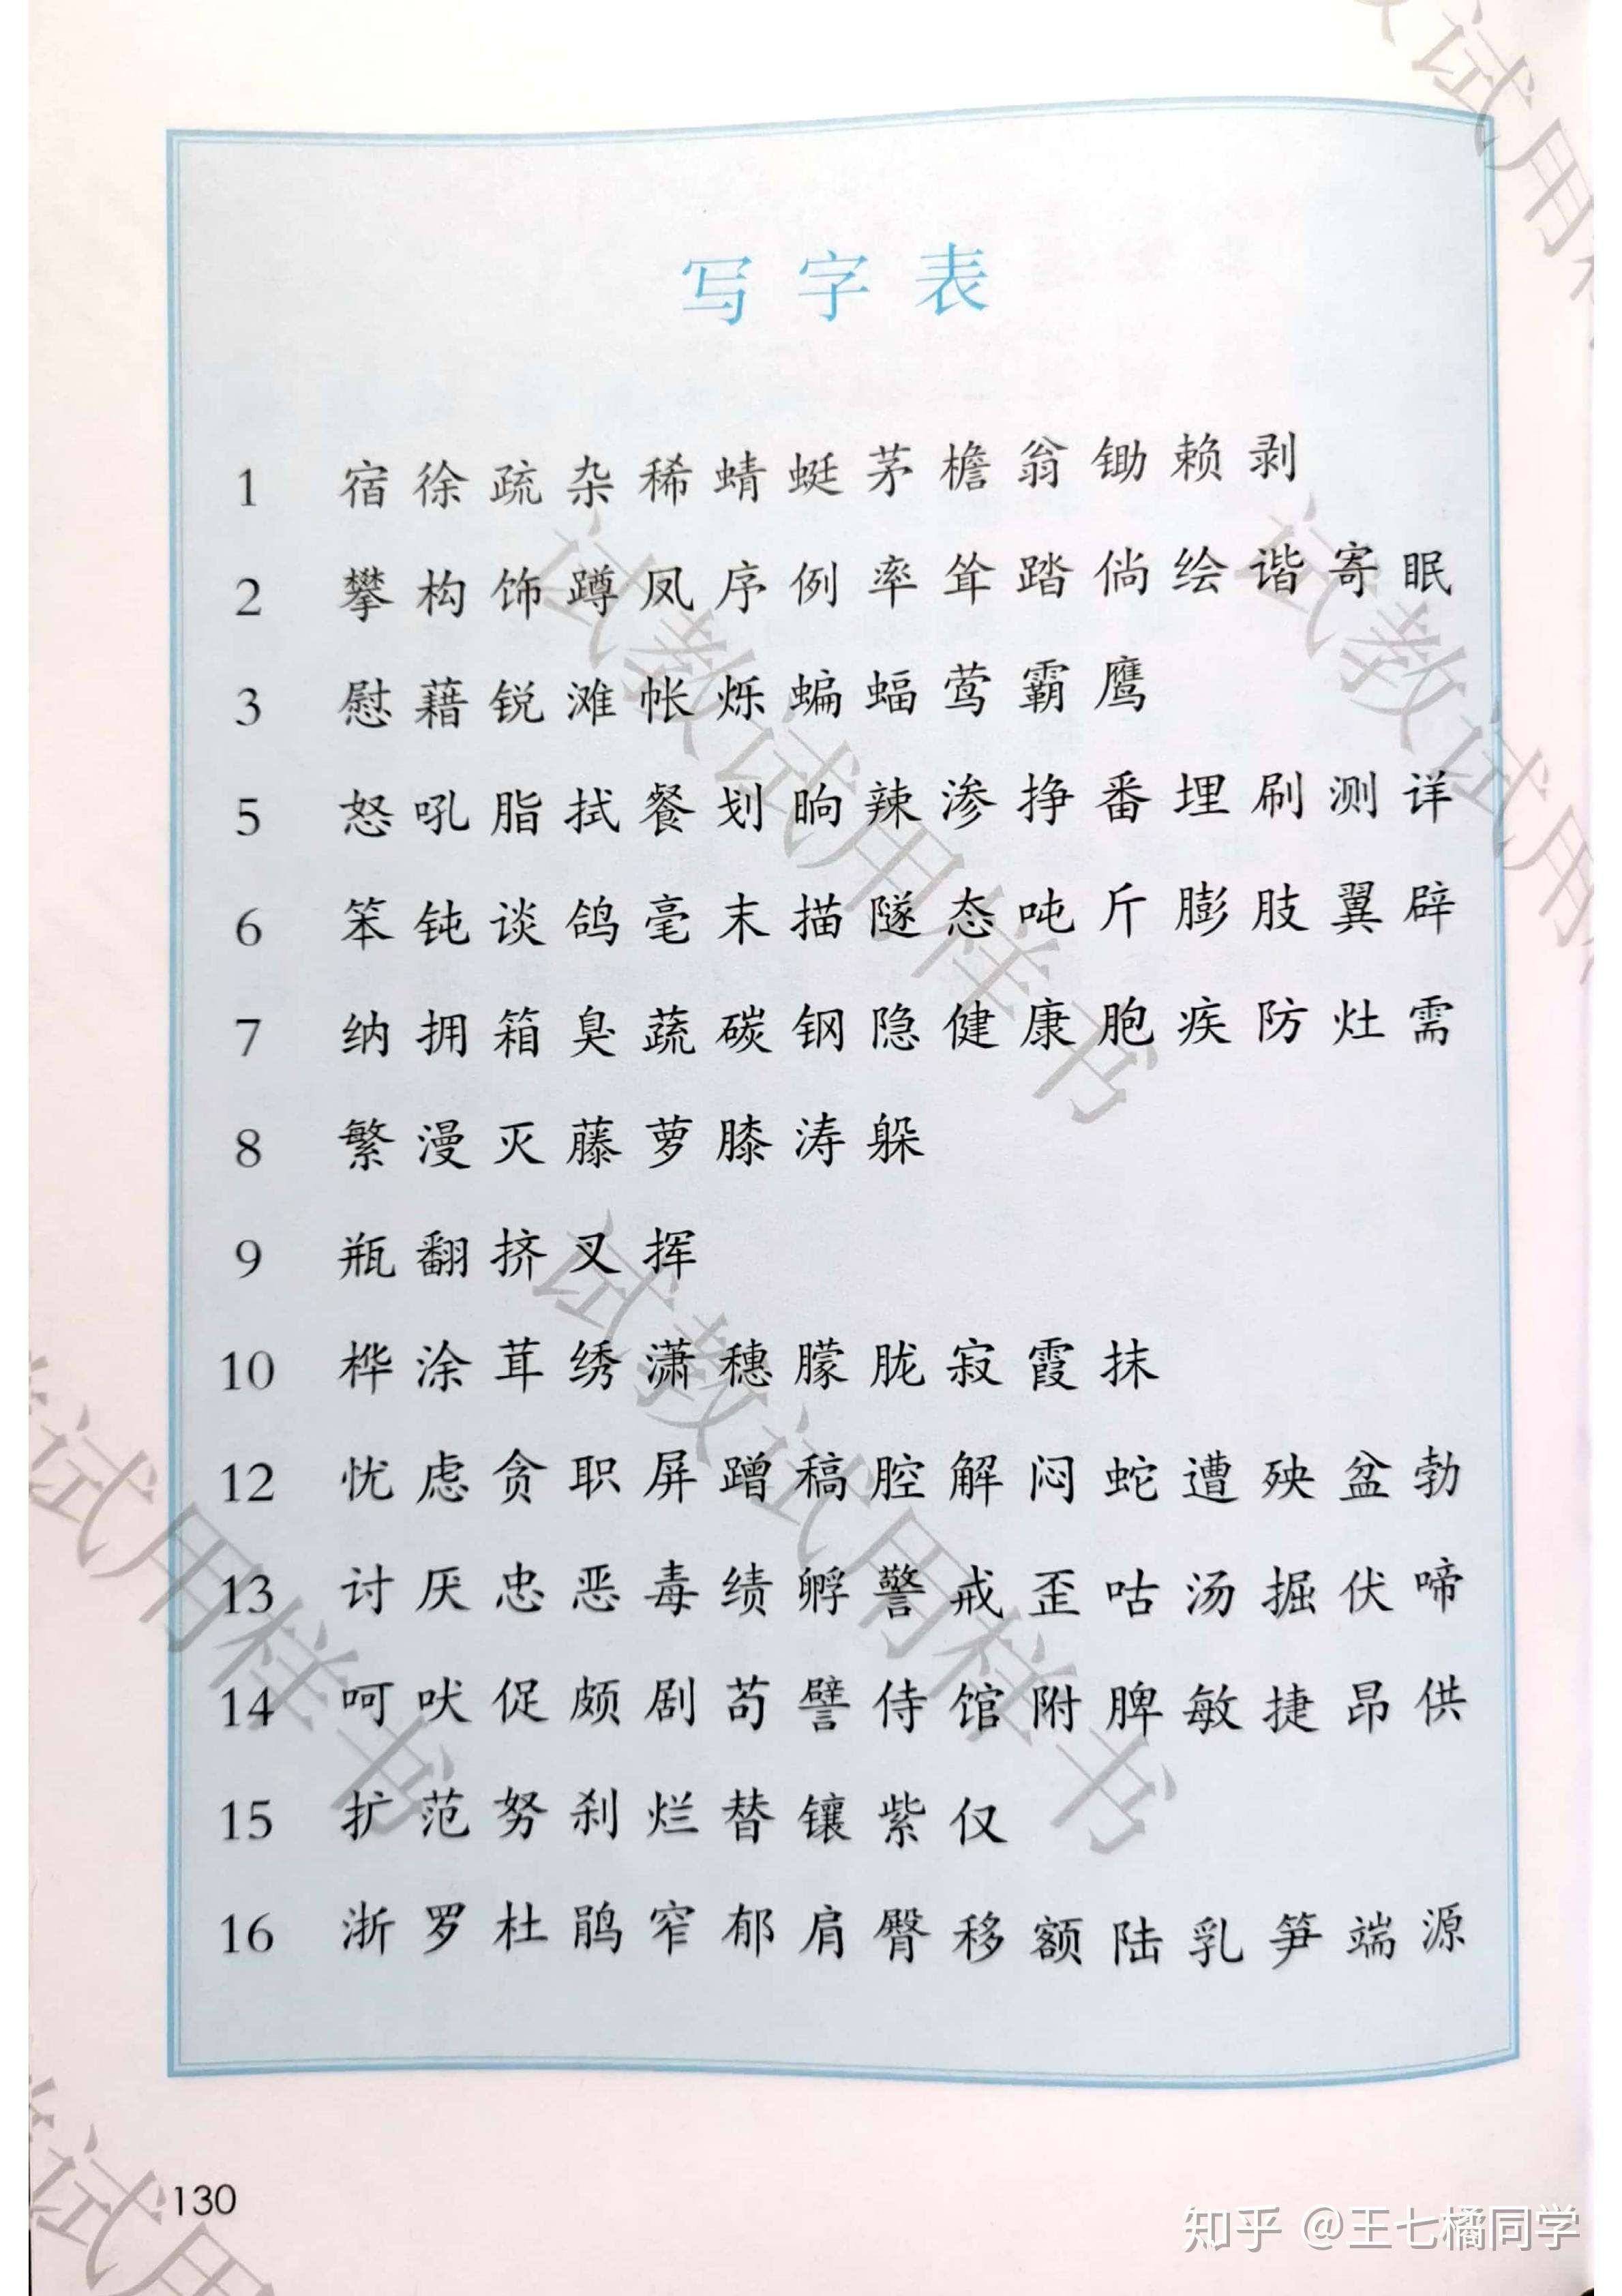 写字表
1 宿徐疏杂稀蜻蜓茅檐翁锄赖剥
2 攀构饰蹲凤序例率耸踏倘绘谐寄眠
3 慰藉锐滩帐烁蝙蝠莺霸鹰
5 怒吼脂拭餐划晌辣渗挣番埋刷测详
6 笨钝谈鸽毫末描隧态吨斤膨肢翼辟
7 纳拥箱臭蔬碳钢隐健康胞疾防灶需
8 繁漫灭藤萝膝涛躲
9 瓶翻挤叉挥
10 桦涂茸绣潇穗朦胧寂霞抹
12 忧虑贪职屏蹭稿腔解闷蛇遭殃盆勃
13 讨厌忠恶毒绩孵警戒歪咕汤掘伏啼
14 呵吠促颇剧苟譬侍馆附脾敏捷昂供
15 扩范努刹烂替镶紫仅
16 浙罗杜鹃窄郁肩臀移额陆乳笋端源
130
知乎 @王七橘同学
试教试用样书
试教试用样书
试教试用样书
试用样书